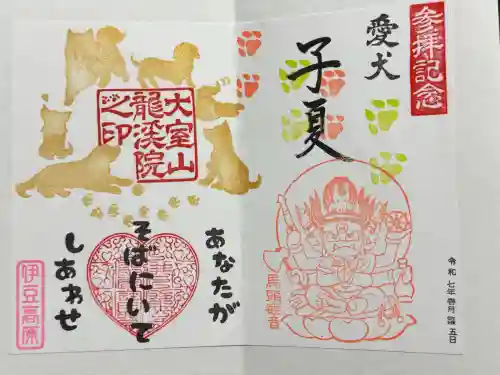 参拝記念
愛犬
子夏
馬頭観音
令和七年
五日
大室山
龍溪院
之印
あなたが
そばにいて
しあわせ
伊豆高原